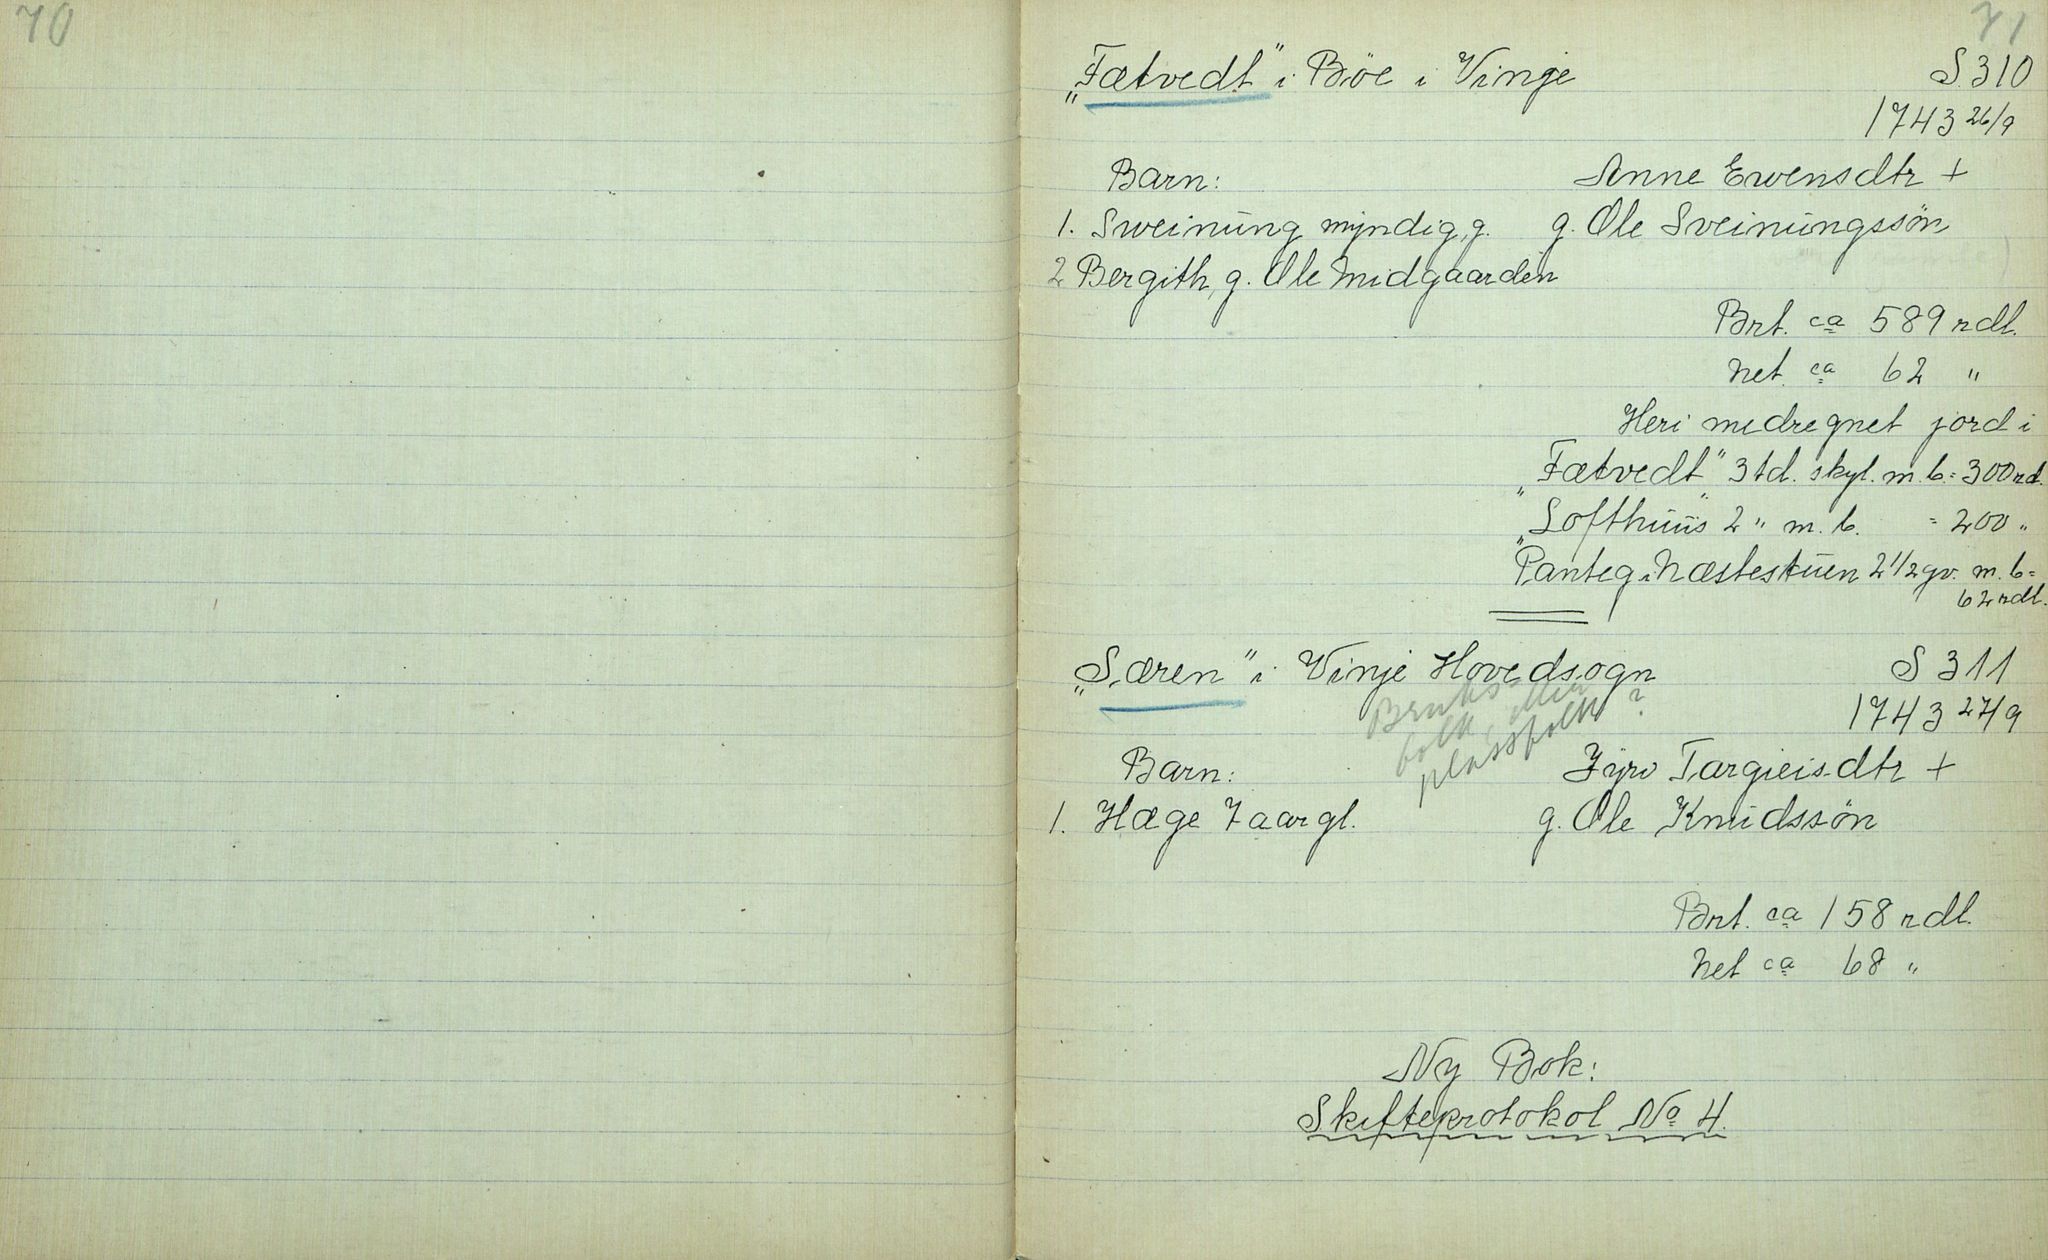 70
71
„Fætvedt" i Böe i Vinje S. 310
1743 26/9
Barn: Anne Evensdtr +
1. Sveinung myndig, g. g. Ole Sveinungssön
2 Bergith, g. Ole Midgaarden
Brt. ca 589 rdl.
Net. ca 62 "
Heri medregnet jord i
„Fætvedt" 3 td. skyl. m. b. = 300 rd.
„Lofthuus" 2 " m. b. = 200 "
Panteg. i Næstestuen 2 1/2 gv. m. b =
62 rdl.
„Særen" i Vinje Hovedsogn S 311
1743 27/9
Bruks-
folk, eller
plassfolk?
Barn: Jyro Targieisdtr +
1. Hæge 7 aar gl. g. Ole Knudssön
Brt. ca 158 rdl.
Net ca 68 "
Ny Bok:
Skifteprotokol No 4.